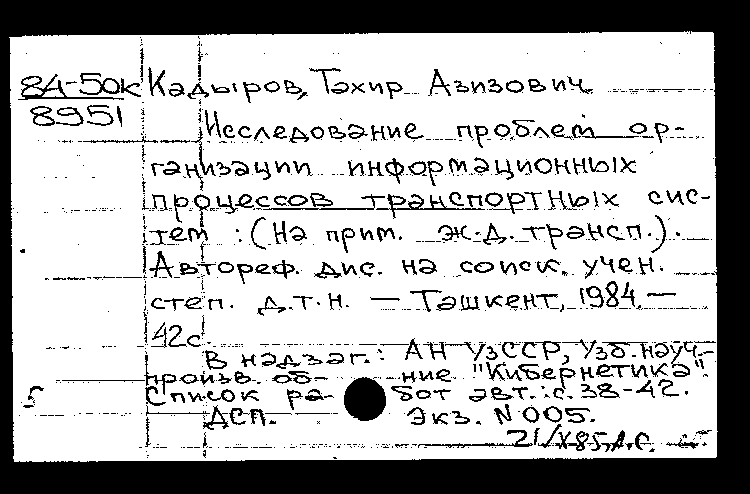 84-50к Кадыров, Тахир Азизович.
8951
Исследование проблем ор-
ганизации информационных
процессов транспортных сис-
тем : (На прим. ж.-д. трансп.).
Автореф. дис. на соиск. учен.
степ. д.т.н. — Ташкент, 1984.—
42с.
В надзаг.: АН УзССР, Узб. науч.-
произв. об- ние "Кибернетика".
Список ра- бот авт.: с. 38-42.
ДСП. Экз. N 005.
21/X-85, А.С.